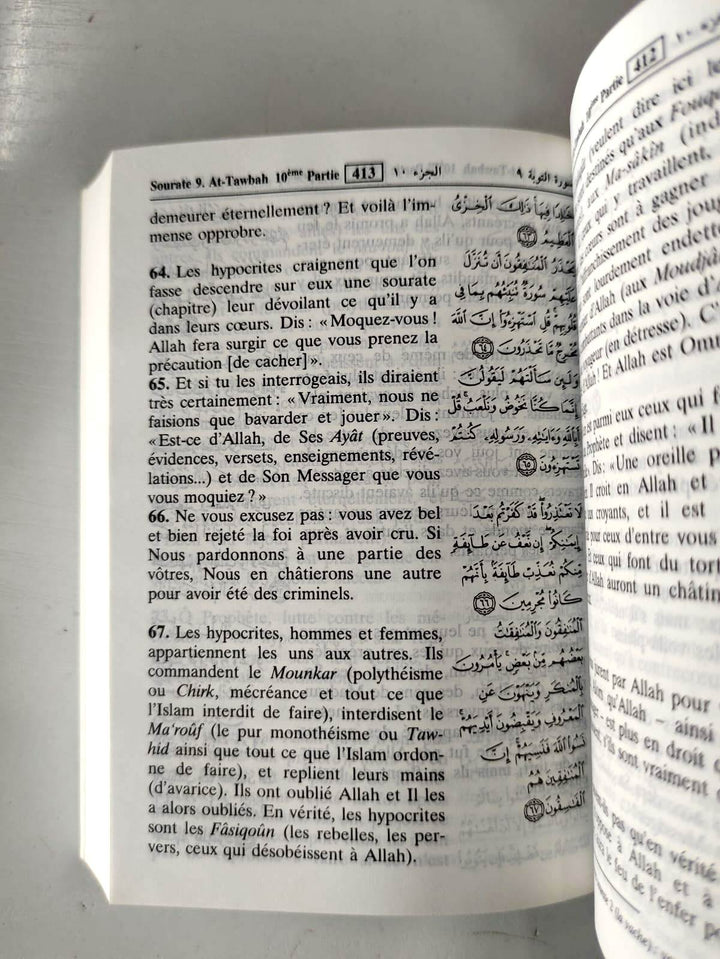 Sourate 9. At-Tawbah 10ème Partie 413 الجزء ١٠ سورة التوبة ٩
demeurer éternellement ? Et voilà l'im-
mense opprobre.
64. Les hypocrites craignent que l'on
fasse descendre sur eux une sourate
(chapitre) leur dévoilant ce qu'il y a
dans leurs cœurs. Dis : « Moquez-vous !
Allah fera surgir ce que vous prenez la
précaution [de cacher] ».
65. Et si tu les interrogeais, ils diraient
très certainement : « Vraiment, nous ne
faisions que bavarder et jouer ». Dis :
« Est-ce d'Allah, de Ses Ayât (preuves,
évidences, versets, enseignements, révé-
lations...) et de Son Messager que vous
vous moquiez ? »
66. Ne vous excusez pas : vous avez bel
et bien rejeté la foi après avoir cru. Si
Nous pardonnons à une partie des
vôtres, Nous en châtierons une autre
pour avoir été des criminels.
67. Les hypocrites, hommes et femmes,
appartiennent les uns aux autres. Ils
commandent le Mounkar (polythéisme
ou Chirk, mécréance et tout ce que
l'Islam interdit de faire), interdisent le
Ma'roûf (le pur monothéisme ou Taw-
hid ainsi que tout ce que l'Islam ordon-
ne de faire), et replient leurs mains
(d'avarice). Ils ont oublié Allah et Il les
a alors oubliés. En vérité, les hypocrites
sont les Fâsiqoûn (les rebelles, les per-
vers, ceux qui désobéissent à Allah).
خَالِدًا فِيهَا ذَٰلِكَ الْخِزْىُ
الْعَظِيمُ ٦٣
يَحْذَرُ الْمُنَافِقُونَ أَن تُنَزَّلَ
عَلَيْهِمْ سُورَةٌ تُنَبِّئُهُم بِمَا فِى
قُلُوبِهِمْ قُلِ اسْتَهْزِءُوا إِنَّ اللَّهَ
مُخْرِجٌ مَّا تَحْذَرُونَ ٦٤
وَلَئِن سَأَلْتَهُمْ لَيَقُولُنَّ
إِنَّمَا كُنَّا نَخُوضُ وَنَلْعَبُ قُلْ
أَبِاللَّهِ وَءَايَاتِهِ وَرَسُولِهِ كُنتُمْ
تَسْتَهْزِءُونَ ٦٥
لَا تَعْتَذِرُوا قَدْ كَفَرْتُم بَعْدَ
إِيمَانِكُمْ إِن نَّعْفُ عَن طَائِفَةٍ
مِّنكُمْ نُعَذِّبْ طَائِفَةً بِأَنَّهُمْ
كَانُوا مُجْرِمِينَ ٦٦
الْمُنَافِقُونَ وَالْمُنَافِقَاتُ
بَعْضُهُم مِّن بَعْضٍ يَأْمُرُونَ
بِالْمُنكَرِ وَيَنْهَوْنَ عَنِ
الْمَعْرُوفِ وَيَقْبِضُونَ أَيْدِيَهُمْ
نَسُوا اللَّهَ فَنَسِيَهُمْ إِنَّ
الْمُنَافِقِينَ هُمُ
الْفَاسِقُونَ ٦٧
10ème Partie 412
(veulent dire ici le
qu'aux Fouq
aux Ma-sâkîn (ind
qui y travaillent,
sont à gagner
des jou
lourdement endett
d'Allah (aux Moudj
dans la voie d'
(en détresse). C'
Et Allah est Om
parmi eux ceux qui f
Prophète et disent : « Il
Dis : « Une oreille p
Il croit en Allah et
croyants, et il est
pour ceux d'entre vous
ceux qui font du tort
d'Allah auront un châtim
par Allah pour
qu'Allah – ainsi
est plus en droit
s'ils sont vraiment
pas qu'en vérité
à Allah et à
le feu de l'enfer